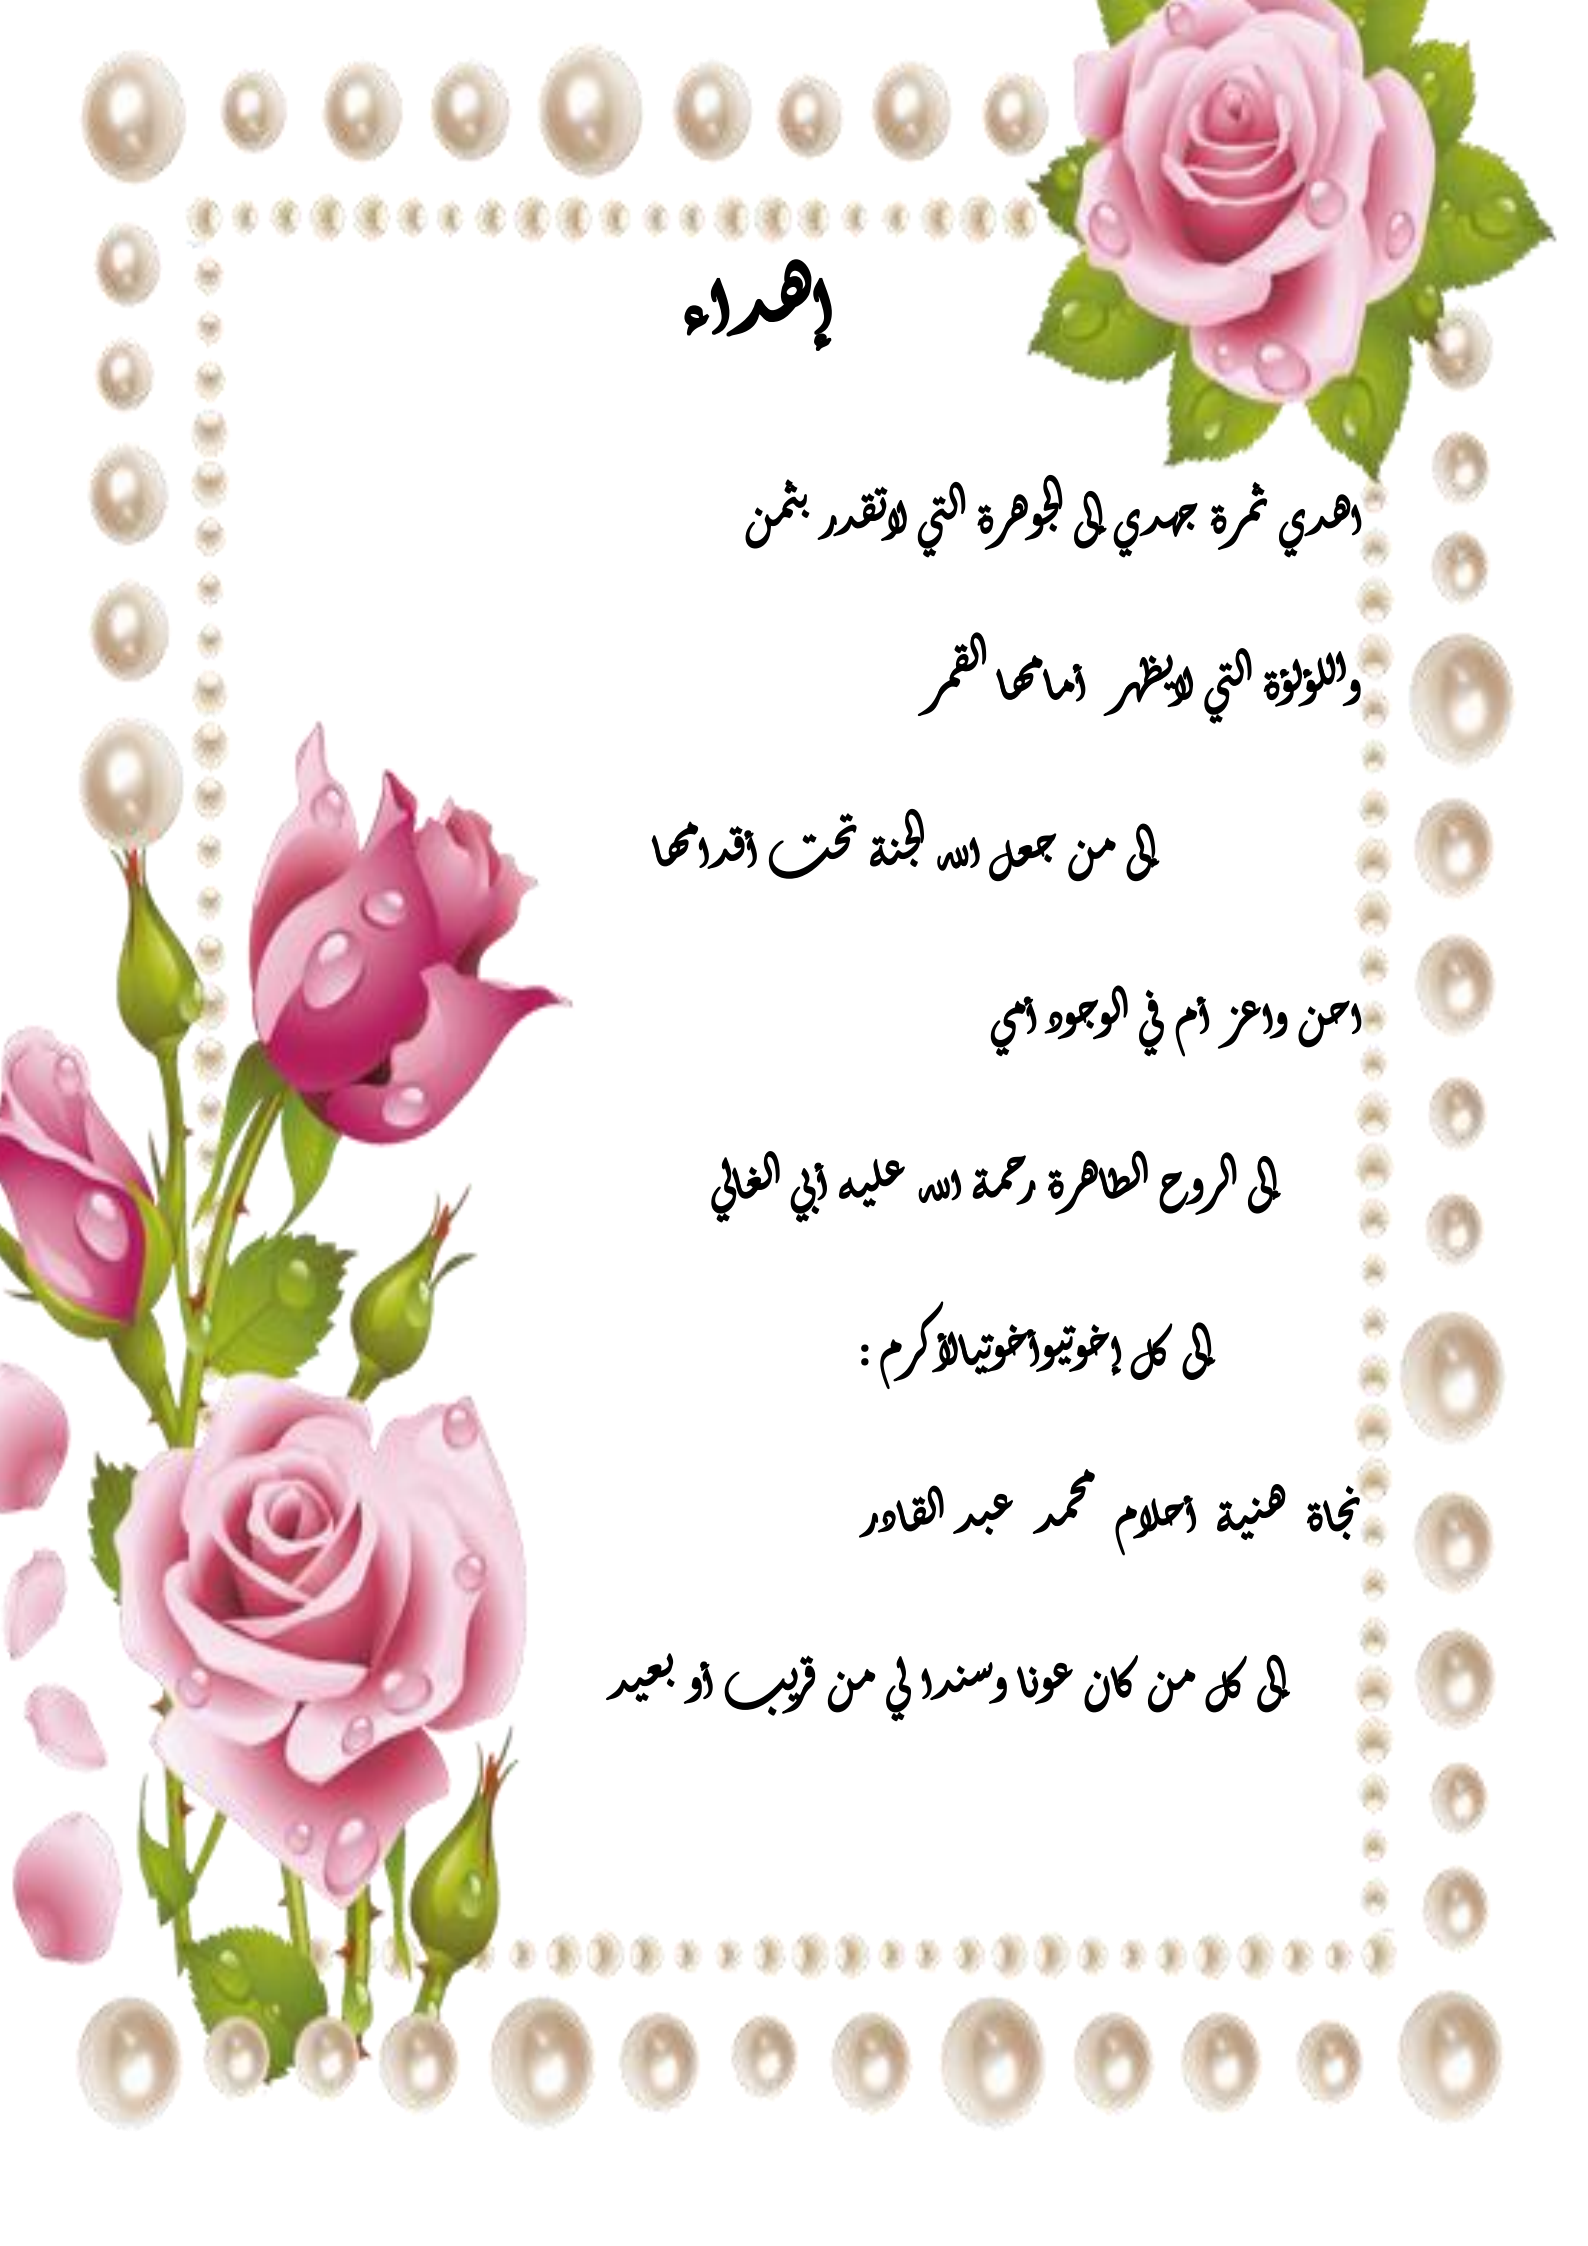 إهداء
اهدي ثمرة جهدي إلى الجوهرة التي لاتقدر بثمن
واللؤلؤة التي لايظهر أمامها القمر
إلى من جعل الله الجنة تحت أقدامها
احن واعز أم في الوجود أمي
إلى الروح الطاهرة رحمة الله عليه أبي الغالي
إلى كل إخوتيوأخوتيالأكرم :
نجاة هنية أحلام محمد عبد القادر
إلى كل من كان عونا وسندا لي من قريب أو بعيد